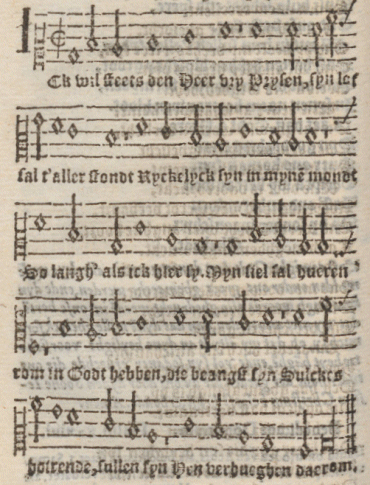 Ck wil steets den Heer vry Prysen, syn lof
sal t'aller stondt Ryckelyck syn in mynē mondt
So langh' als ick hier sy. Myn siel sal hueren
rom in Godt hebben, die beangst syn Sulckes
hoirende, sullen syn Hen verhueghen daerom.